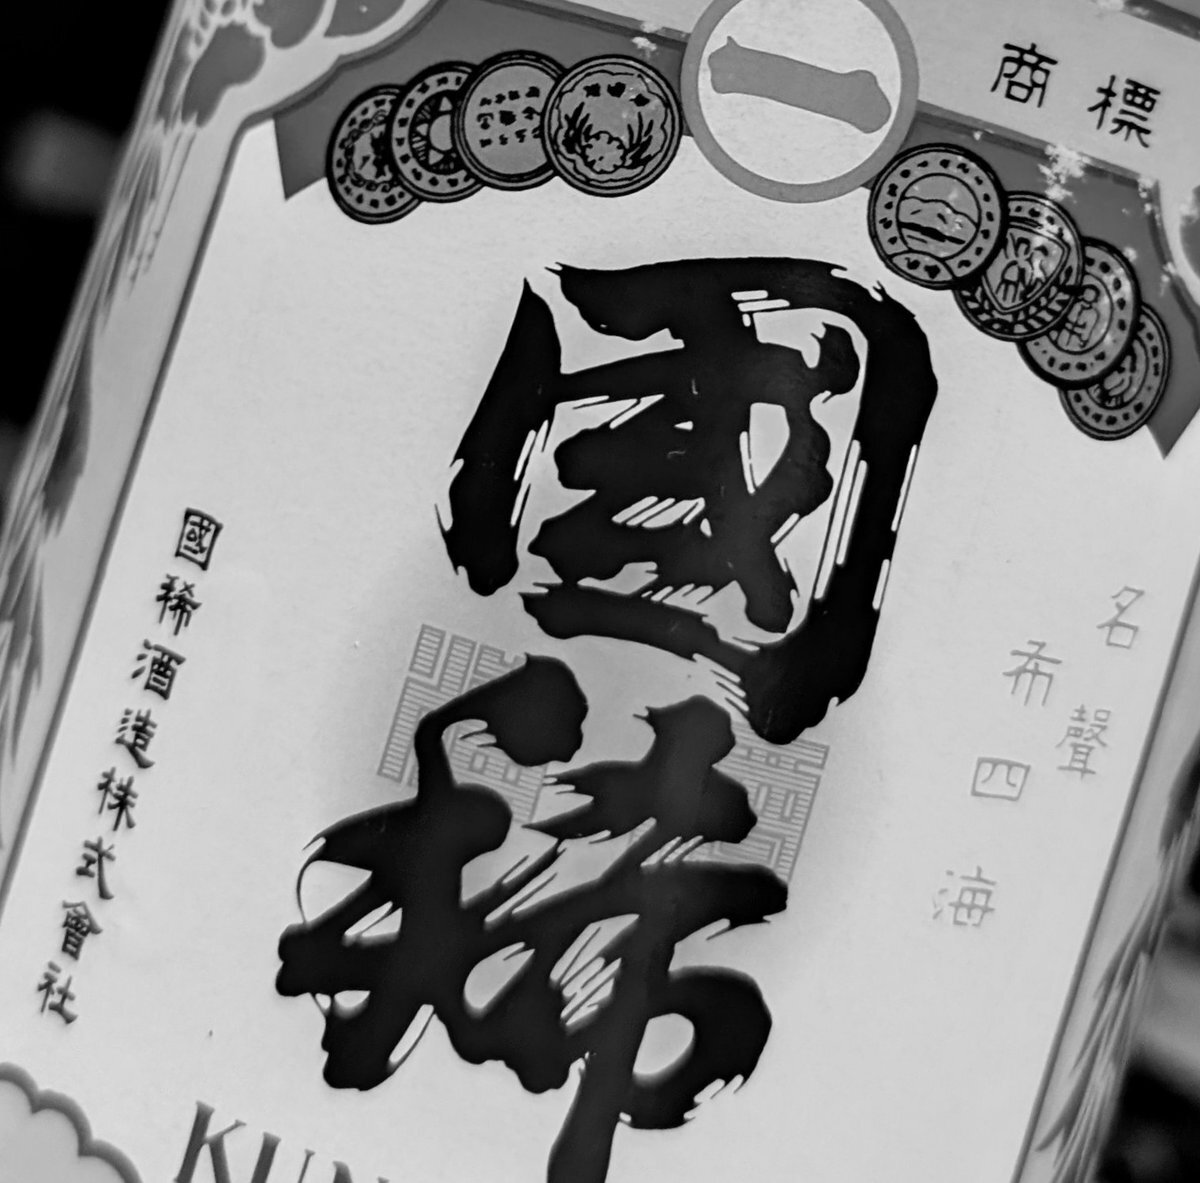 商標
一
國稀
名聲
布四海
國稀酒造株式會社
KUN